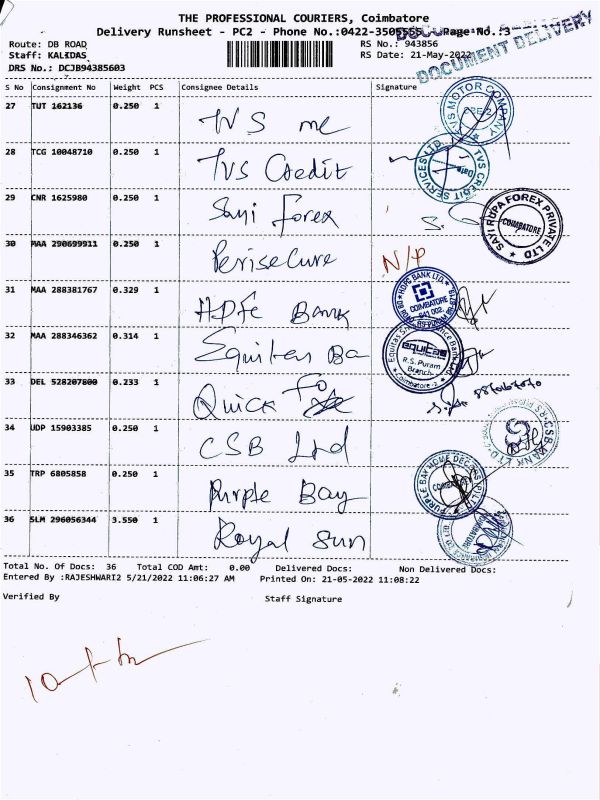 THE PROFESSIONAL COURIERS, Coimbatore
Delivery Runsheet - PC2 - Phone No.:0422-3505555 Page No.:3
DOCUMENT DELIVERY
Route: DB ROAD RS No.: 943856
Staff: KALIDAS RS Date: 21-May-2022
DRS No.: DCJB94385603
S No Consignment No Weight PCS Consignee Details Signature
27 TUT 162136 0.250 1 TVS mc
28 TCG 10048710 0.250 1 TVS Credit
29 CNR 1625980 0.250 1 Sayi Forex
30 MAA 290699911 0.250 1 PeriseCure N/P
31 MAA 288381767 0.329 1 HDFC BANK
32 MAA 288346362 0.314 1 Equitas Ba
33 DEL 528207800 0.233 1 Quick Fo
34 UDP 15903385 0.250 1 CSB Ltd
35 TRP 6805858 0.250 1 Purple Bay
36 SLM 296056344 3.550 1 Royal Sun
TVS MOTOR COMPANY
TVS CREDIT SERVICES LTD.
SAYI RUPA FOREX PRIVATE LTD
COIMBATORE
HDFC BANK LTD.
COIMBATORE
641 002.
equitas
R.S. Puram
Branch
Coimbatore-2
CSB BANK LTD
PURPLE BAY HOME DECORS PVT LTD
Total No. Of Docs: 36 Total COD Amt: 0.00 Delivered Docs: Non Delivered Docs:
Entered By :RAJESHWARI2 5/21/2022 11:06:27 AM Printed On: 21-05-2022 11:08:22
Verified By Staff Signature